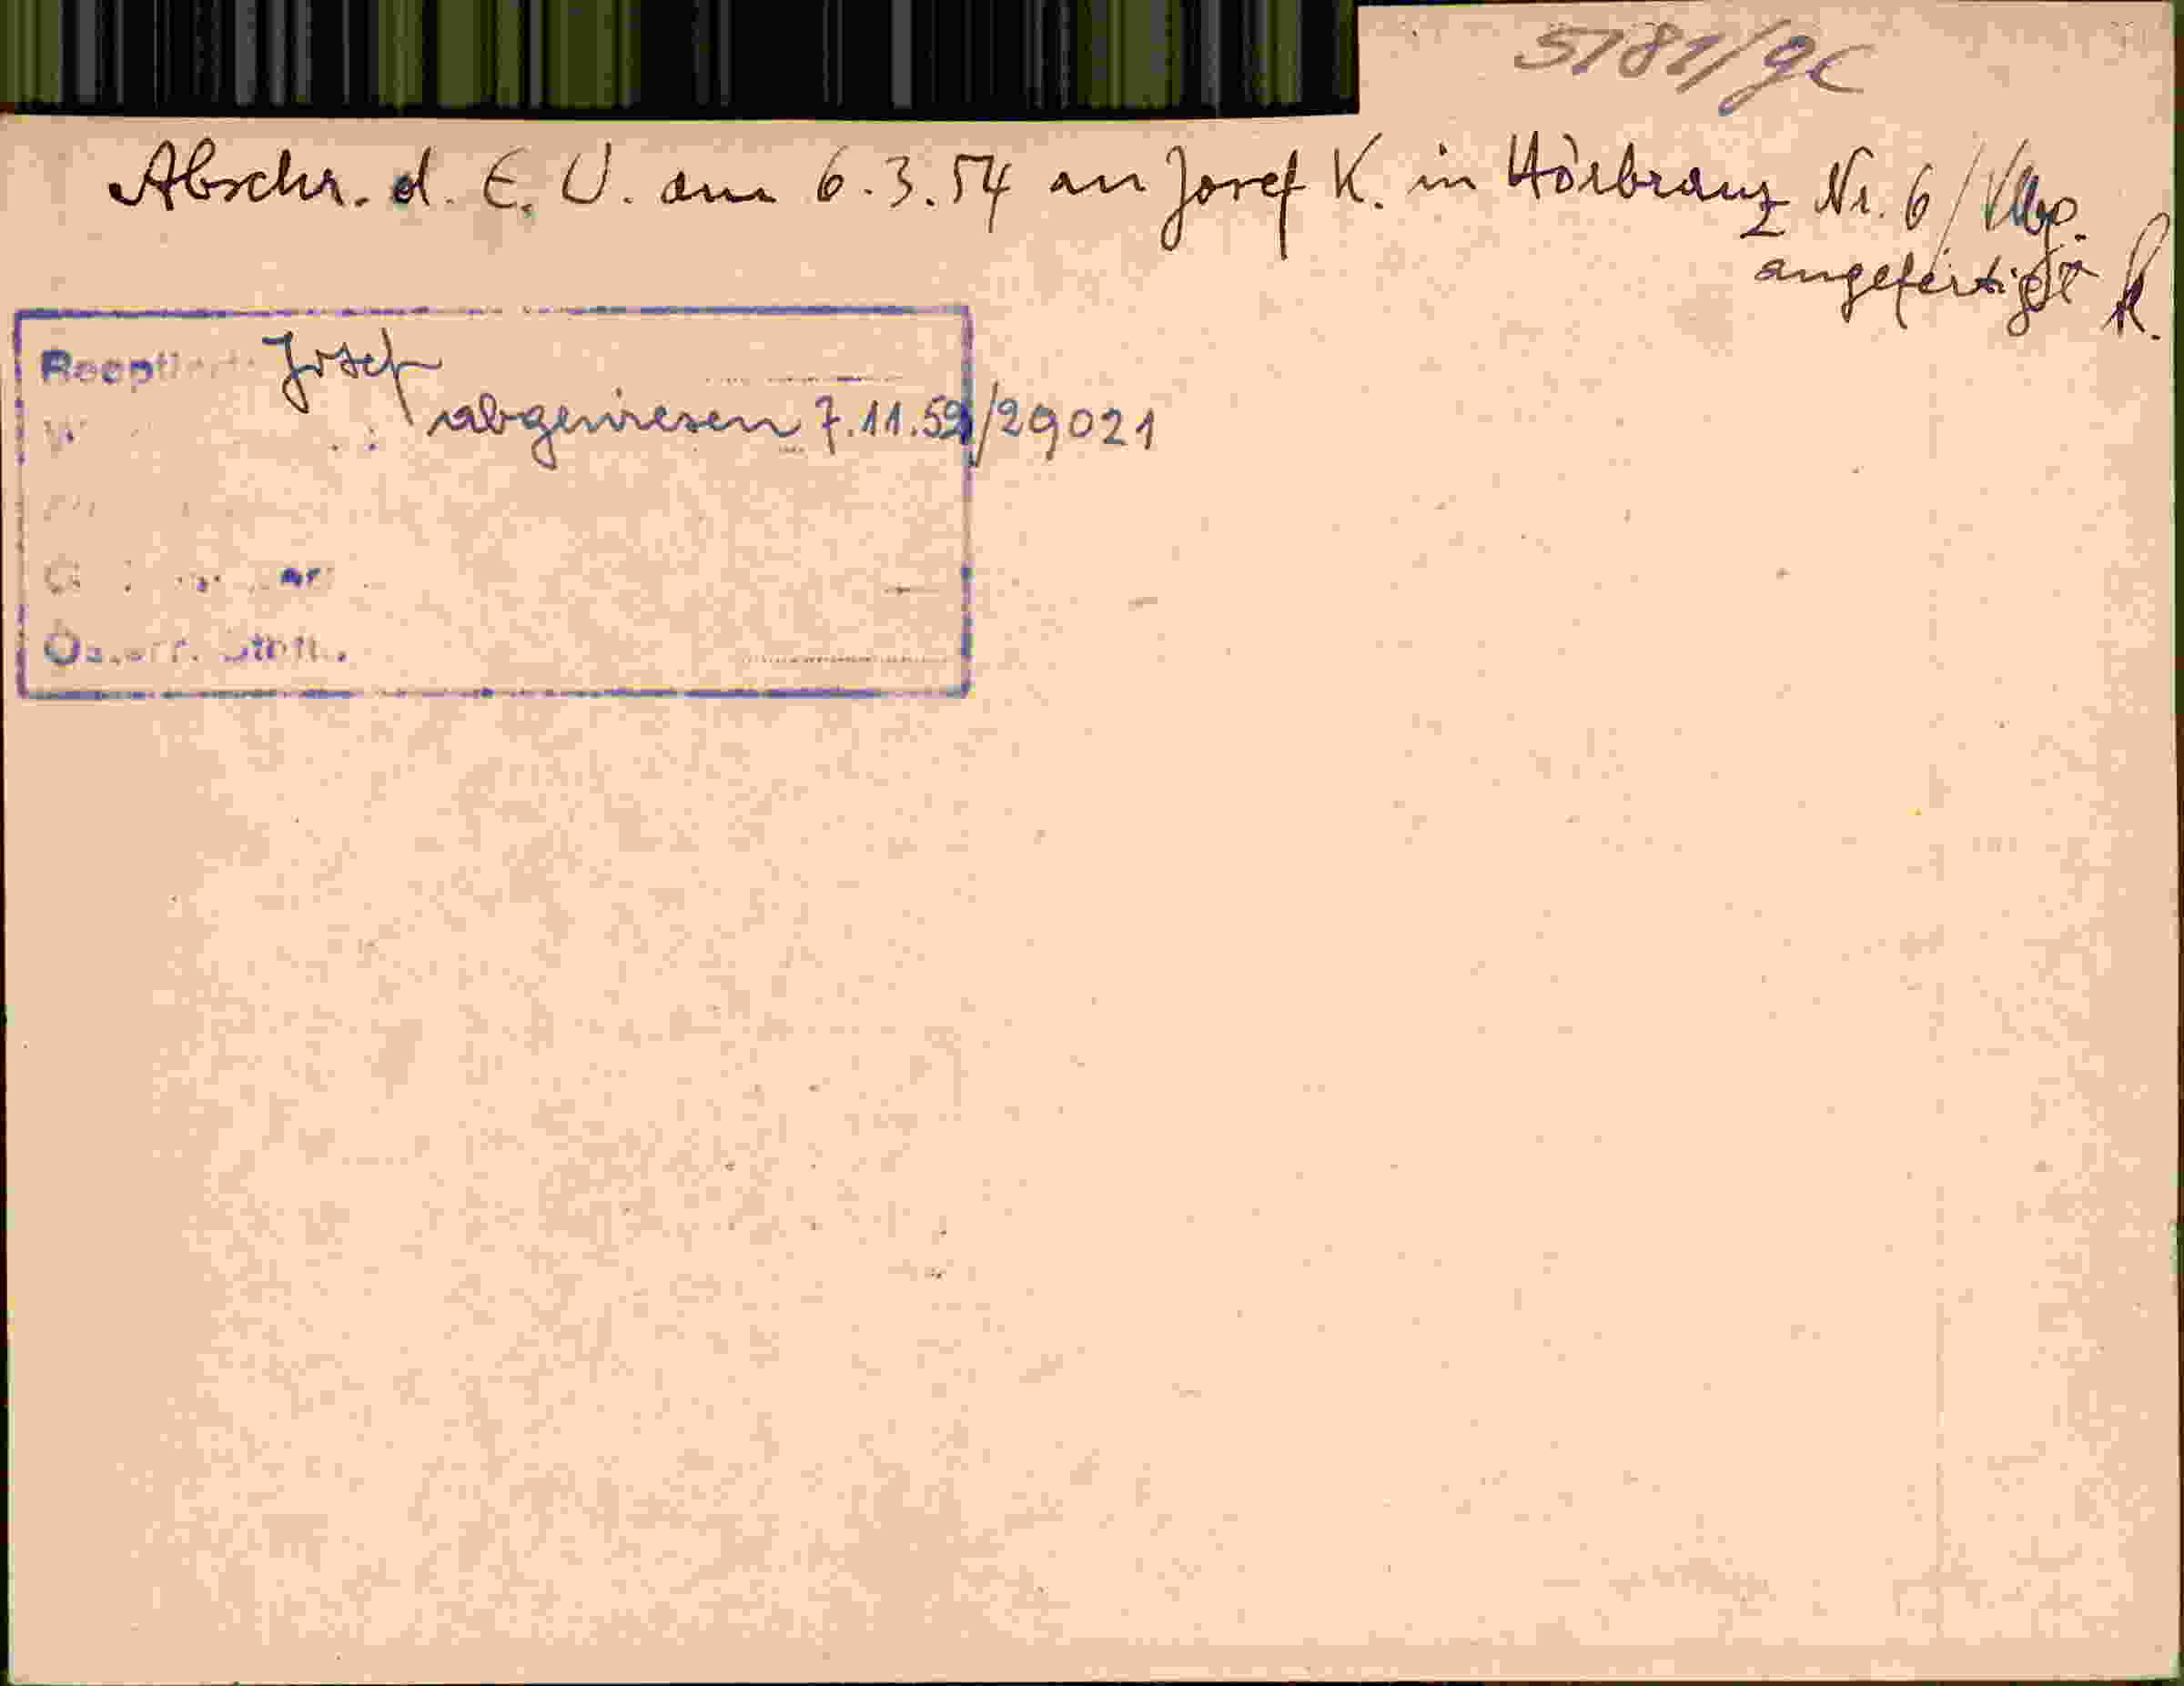 5181/gc
Abschr. d. E. U. am 6.3.54 an Josef K. in Hörbranz Nr. 6 / Vlbg.
angefertigt K.
Josef
abgewiesen 7.11.52/29021
Österr.